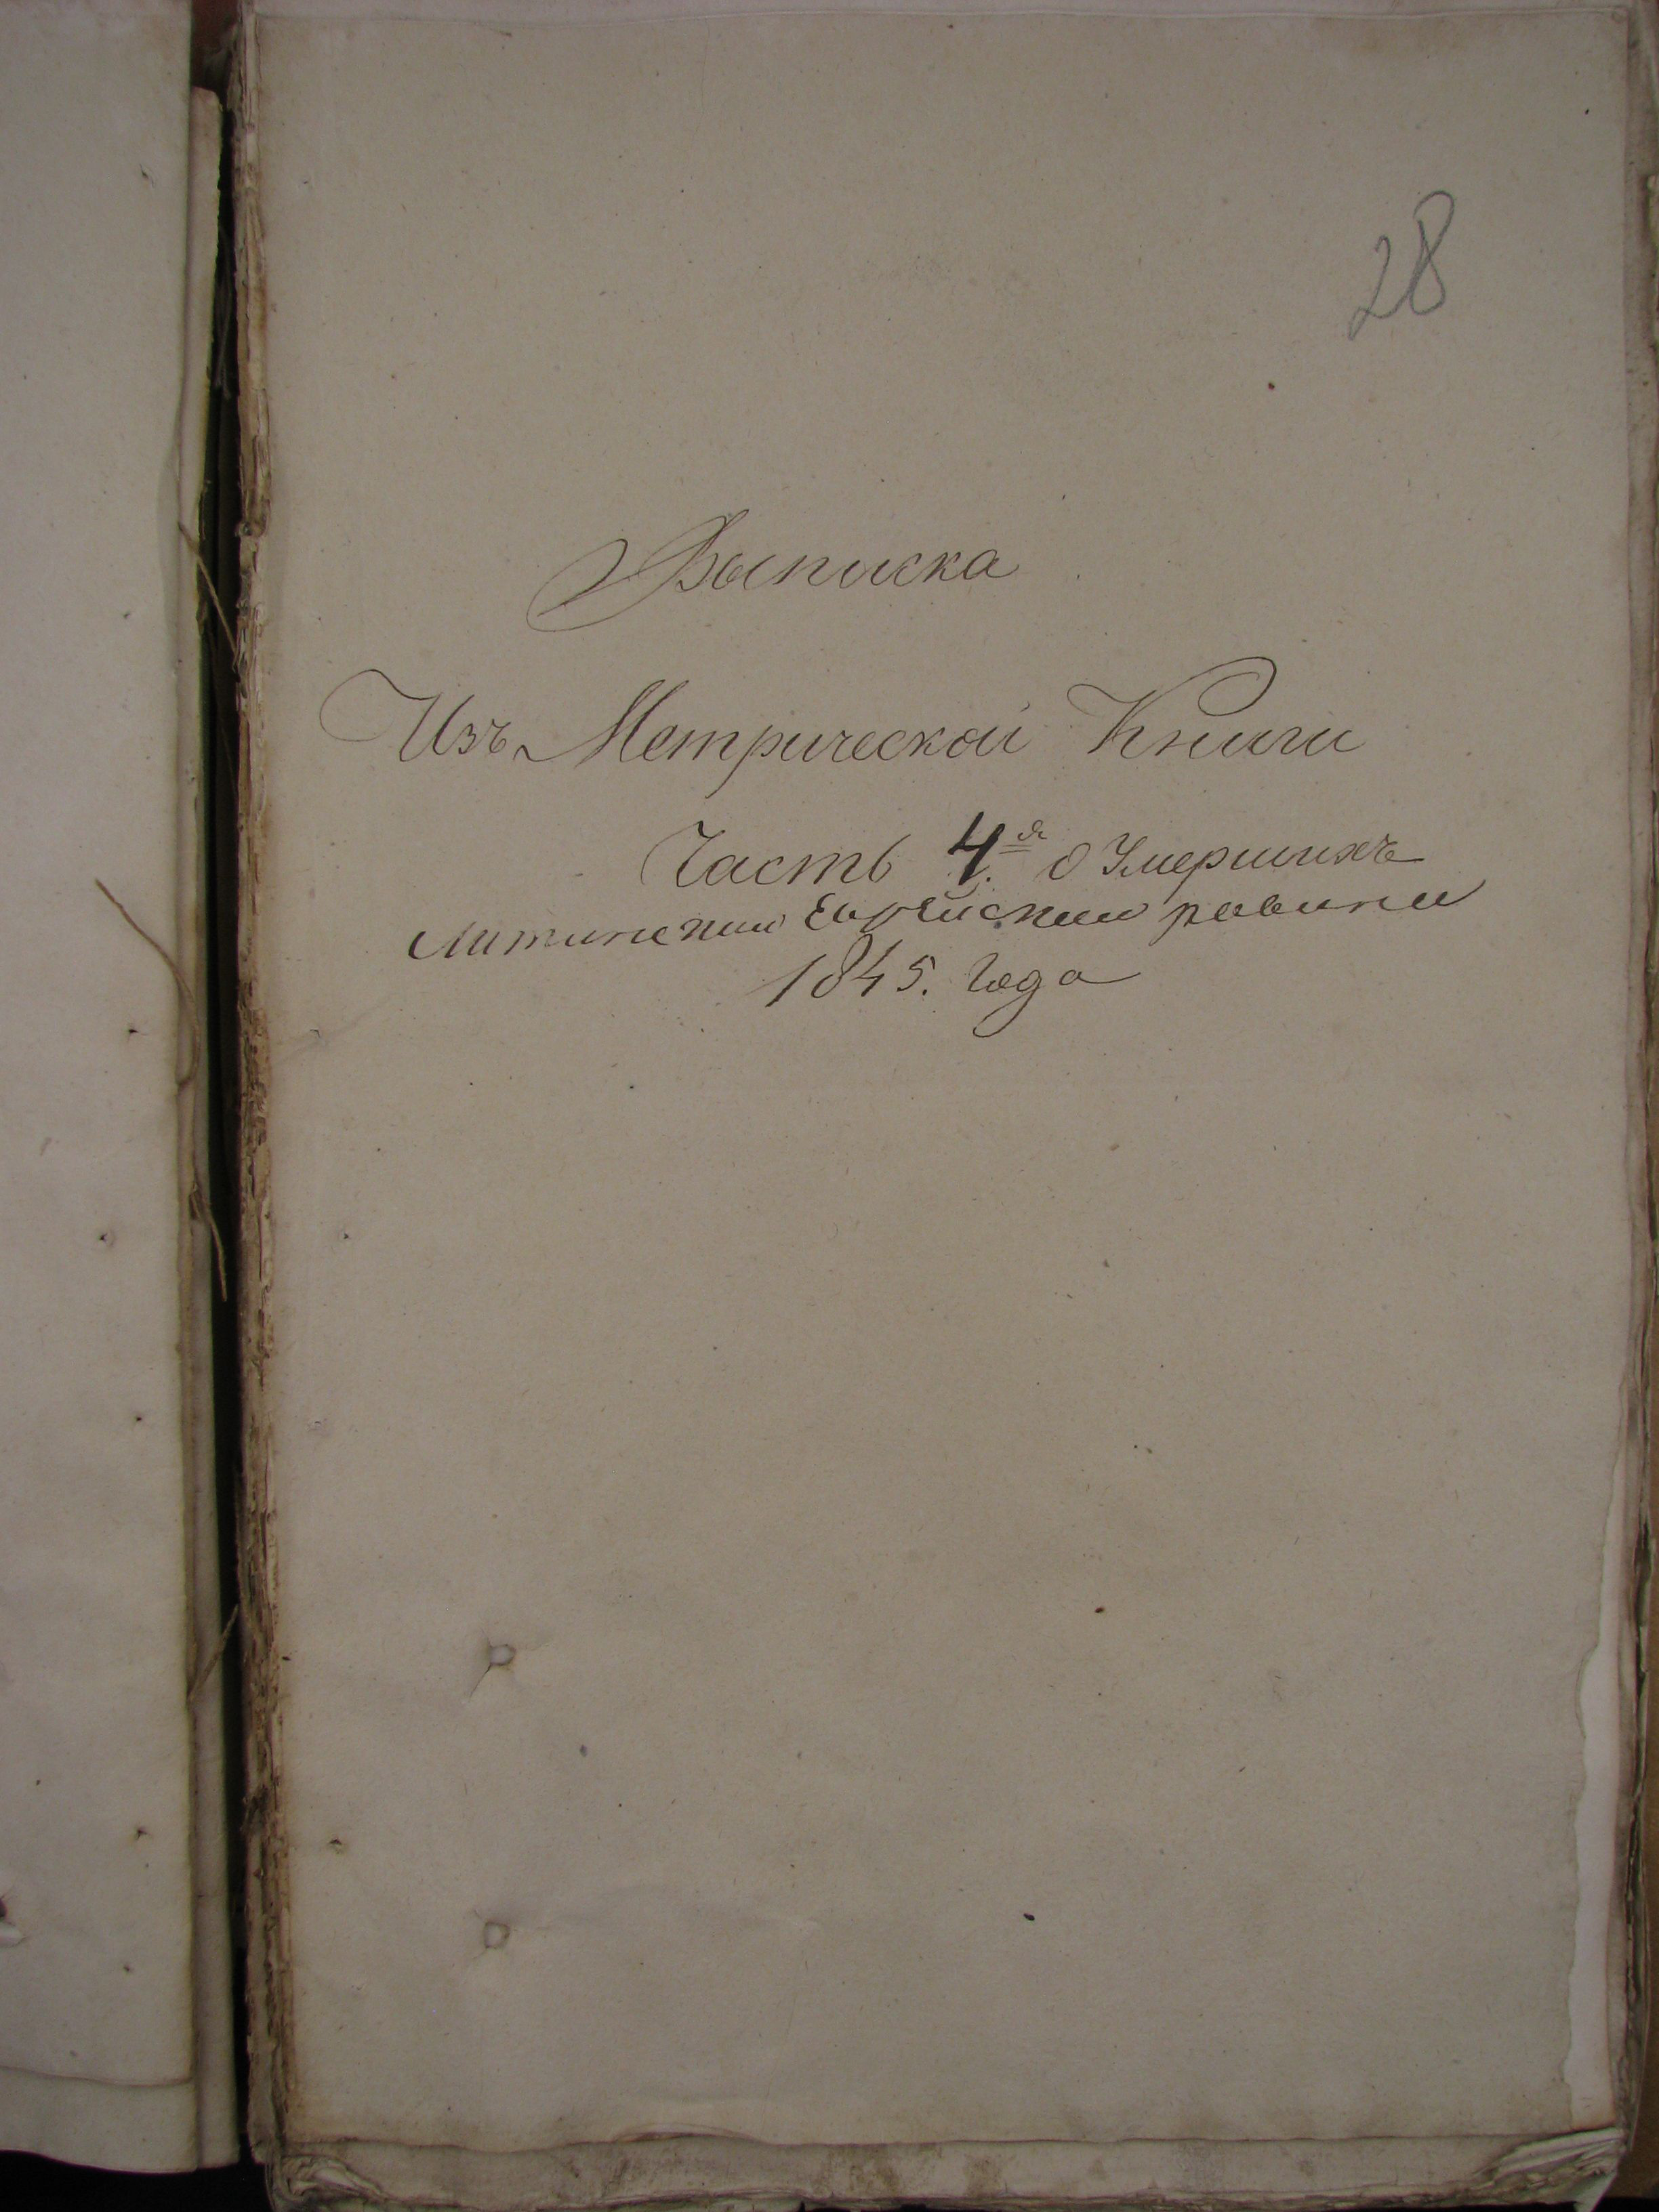 28
Выписка
Изъ Метрической Книги
Часть 4.я о Умершихъ
Литинскии Еврейскии равини
1845. Года